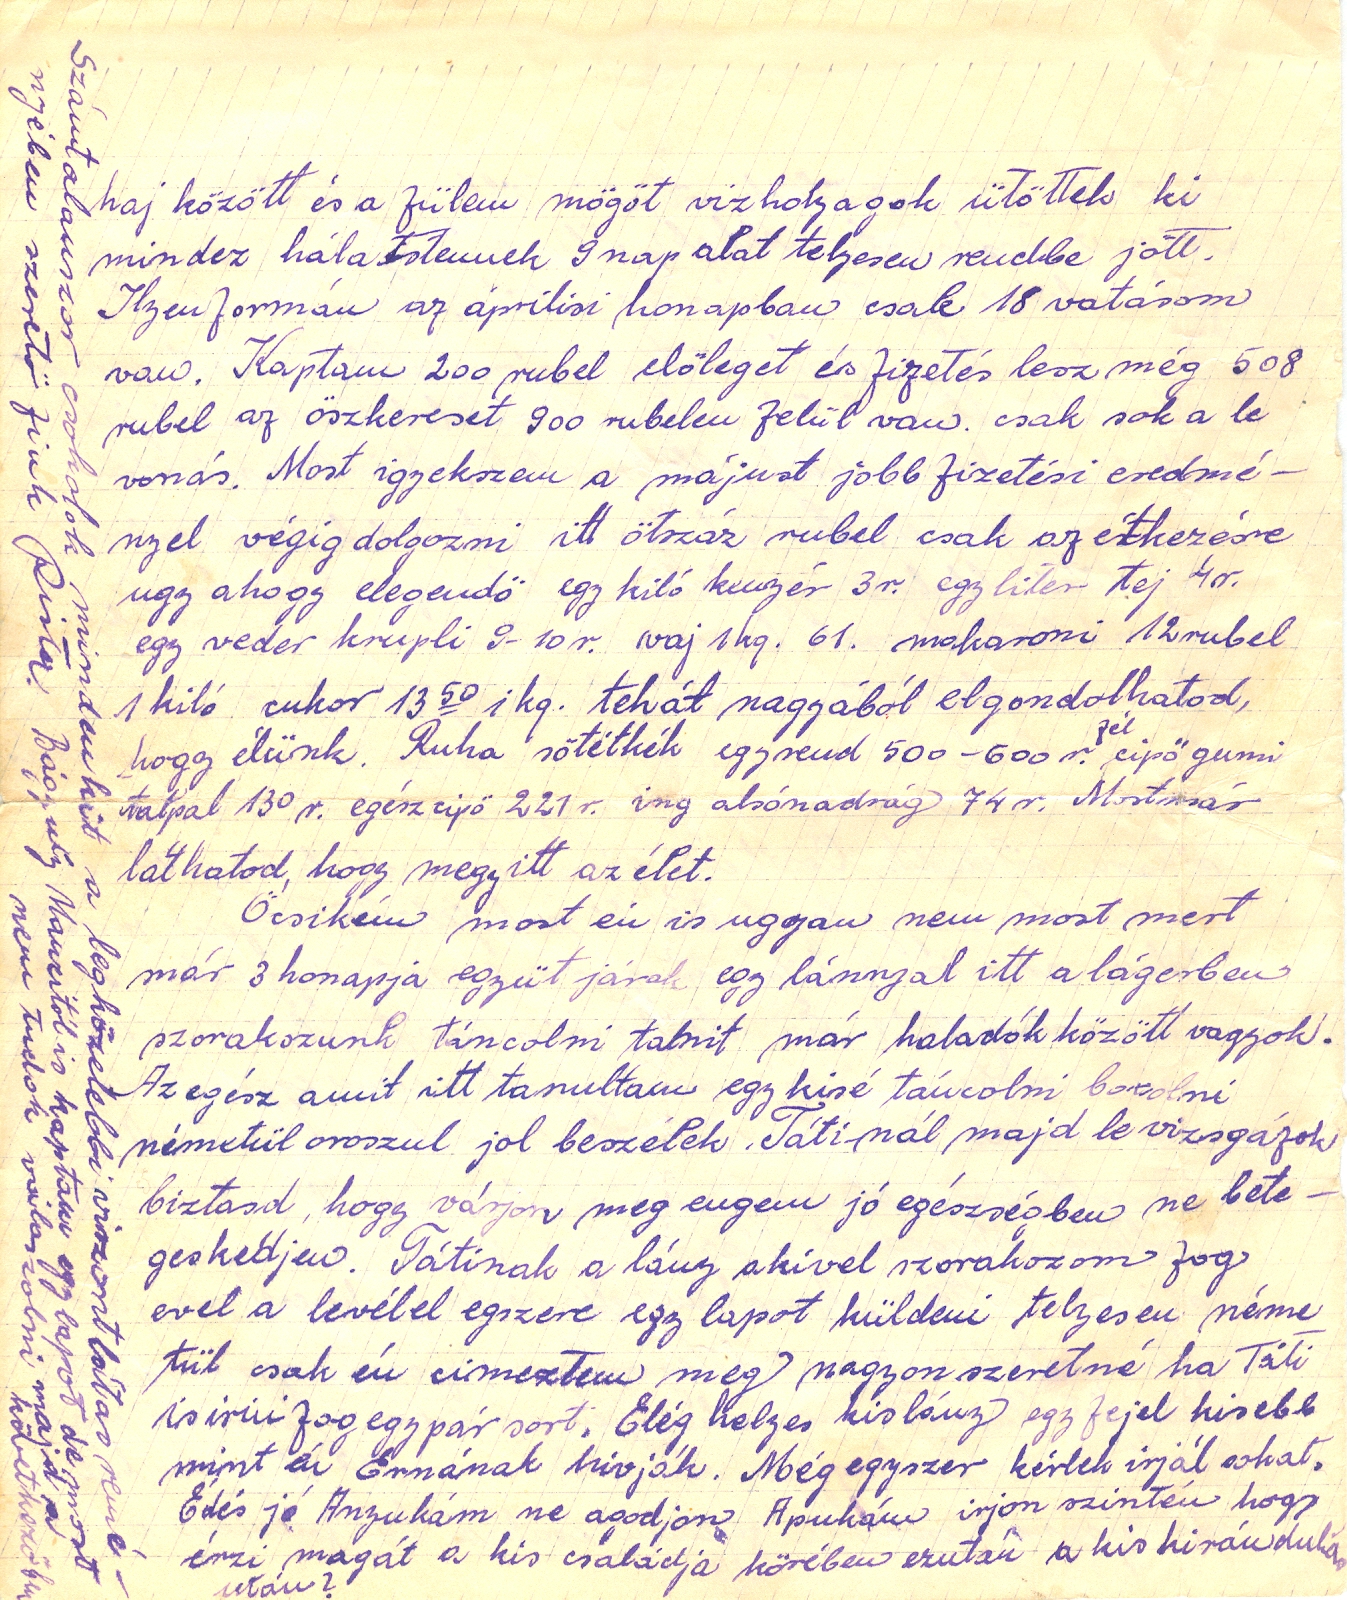 haj között és a fülem mögöt vizholyagok ütöttek ki
mindez hála Istennek 9 nap alat telyesen rendbe jött.
Ilyenformán az áprilisi honapban csak 18 vatásom
van. Kaptam 200 rubel előleget és fizetés lesz még 508
rubel az öszkereset 900 rubelen felül van. csak sok a le
vonás. Most igyekszem a májust jobb fizetési eredmé-
nyel végig dolgozni itt ötszáz rubel csak az étkezésre
ugy ahogy elegendő egy kiló kenyér 3 r. egy liter tej 4 r.
egy veder krupli 9-10 r. vaj 1 kg. 61. makaroni 12 rubel
1 kiló cukor 13 50 1 kg. tehát nagyából elgondolhatod,
hogy élünk. Ruha sötétkék egy rend 500-600 r. fél cipő gumi
talpal 130 r. egész cipő 221 r. ing alsónadrág 74 r. Mostmár
láthatod, hogy megy itt az élet.
Öcsikém most én is ugyan nem most mert
már 3 honapja együt járok egy lánnyal itt a lágerben
szorakozunk táncolni tabnit már haladók között vagyok.
Az egész amit itt tanultam egy kisé táncolni boxolni
németül oroszul jol beszélek. Táti-nál majd le vizsgázok
biztasd, hogy várjon meg engem jó egészségben ne bete-
geskedjen. Tátinak a lány akivel szorakozom fog
evel a levélel egszere egy lapot küldeni telyesen néme
tül csak én cimeztem meg nagyon szeretné ha Táti
is irni fog egy pár sort. Elég helyes kislány egy fejel kisebb
mint én Ernának hivják. Még egyszer kérlek irjál sokat.
Edés jó Anyukám ne agodjon Apukám irjon szintén hogy
érzi magát a kis családja körében ezután a kis kirándulás
után?
Számtalanszor csokolok mindenkit a legközelebbi viszontlátás remé-
nyében szerető fiuk Pista. Bágyuly Nancitól is kaptam egy lapot de most
nem tudok válaszolni majd a
következőben